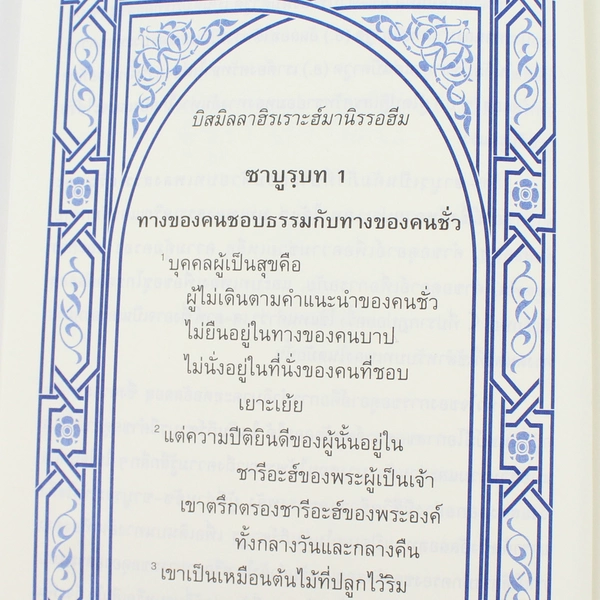 บิสมิลลาฮิรเราะฮ์มานิรรอฮีม
ซาบูรฺบท 1
ทางของคนชอบธรรมกับทางของคนชั่ว
¹บุคคลผู้เป็นสุขคือ
ผู้ไม่เดินตามคำแนะนำของคนชั่ว
ไม่ยืนอยู่ในทางของคนบาป
ไม่นั่งอยู่ในที่นั่งของคนที่ชอบ
เยาะเย้ย
²แต่ความปีติยินดีของผู้นั้นอยู่ใน
ชารีอะฮ์ของพระผู้เป็นเจ้า
เขาตรึกตรองชารีอะฮ์ของพระองค์
ทั้งกลางวันและกลางคืน
³เขาเป็นเหมือนต้นไม้ที่ปลูกไว้ริม